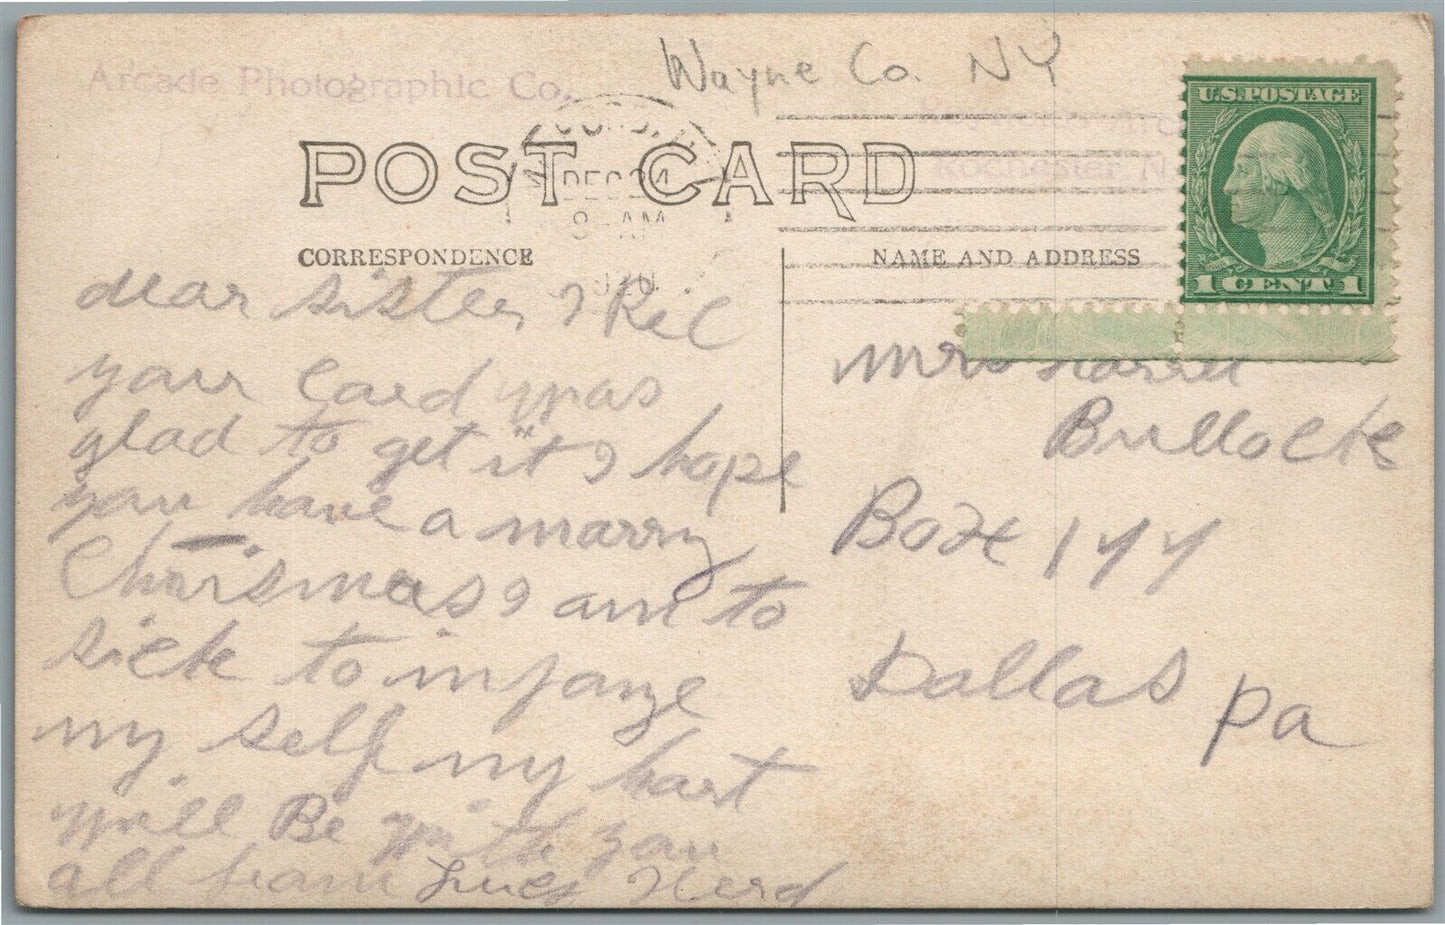 Arcade Photographic Co.,
Wayne Co. NY
Rochester, N.
U.S. POSTAGE
1 CENT 1
DEC 24
8 - AM
POST CARD
CORRESPONDENCE
NAME AND ADDRESS
dear sister I
your card was
glad to get it I hope
you have a marry
Charismas I am to
sick to injaye
my self my hart
will Be with you
all from
Mrs
Bullock
Box 144
Dallas Pa